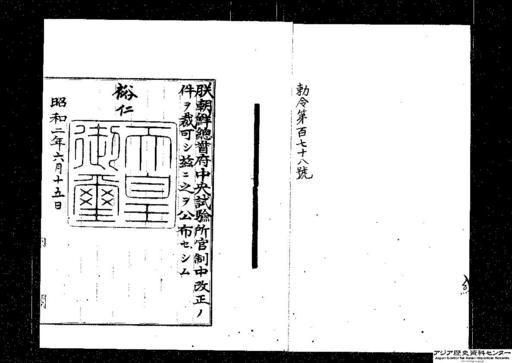 勅令第百七十八號
朕朝鮮總督府中央試驗所官制中改正ノ
件ヲ裁可シ玆ニ之ヲ公布セシム
裕仁
天皇
御璽
昭和二年六月十五日
アジア歴史資料センター
Japan Center for Asian Historical Records